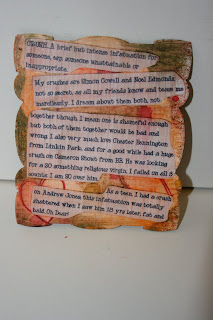 CRUSH: A brief but intense infatuation for
someone, esp. someone unattainable or
inappropriate.
My crushes are Simon Cowell and Noel Edmonds;
not so secret, as all my friends know and tease me
mercilessly. I dream about them both, not
together though. I mean one is shameful enough
but both of them together would be bad and
wrong. I also very much love Chester Bennington
from Linkin Park, and for a good while had a huge
crush on Cameron Stout from BB. He was looking
for a 20 something religious virgin. I failed on all 3
counts. I am 30 over him.
As a teen, I had a crush
on Andrew Jones, this infatuation was totally
shattered when I saw him 18 yrs later, fat and
bald. Oh Dear!